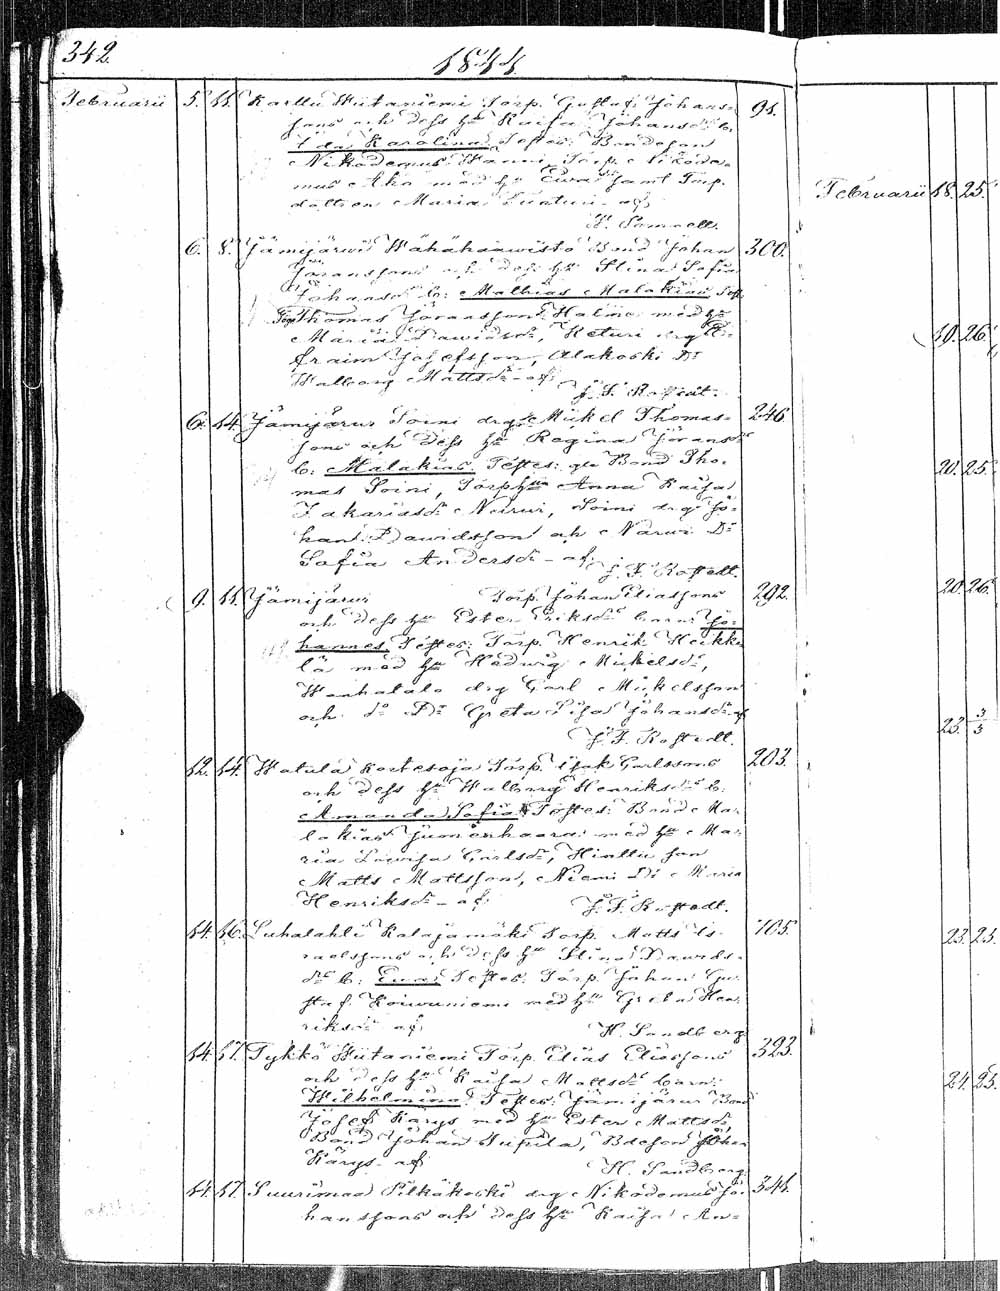 342.
1844.
Februarii 5. 11. Karttu Wiitaniemi Torp. Gustaf Johans= 91.
sons och dess hu Kaisa Johansdr b:
Ida Karolina Testes: Bondeson
Nikodemus Torp. Nikode=
mus Aho med hu Ewa samt Torp.
dottren Maria Lunturi - af
H. Samuell.
6. 8. Jämijärwi Wähähaawisto Bond Johan 300.
Göranssons och dess hu Stina Sofia
Johansdr b: Mathias Malakias Test.
Torp Thomas Göransson med hu
Maria Dawidsdr, Keturi drg Ef=
fraim Josefsson, Alakoski Di
Walborg Mattsdr - af
J. F. Rostedt.
6. 14. Jämijärwi Soini drgs Mickel Thomas= 246.
sons och dess hu Regina Göransdr
b: Malakias Testes: Bond Tho=
mas Soini, Torphu Anna Kaisa
Zakariasdr Neirwi, Soini drg Jo=
han Dawidsson och Narwi Di
Sofia Andersdr - af
J. F. Rostedt.
9. 11. Jämijärwi Torp. Johan Eliassons 292.
och dess hu Ester Eriksdr barn: Jo=
hannes, Testes: Torp. Henrik Heikki
lä med hu Hedwig Mickelsdr,
Wanhatalo drg Carl Mickelsson
och dr Di Greta Lisa Johansdr af
J. F. Rostedt.
12. 14. Watula Kortesoja Torp. Isak Carlssons 203.
och dess hu Walborg Henriksdr b:
Amanda Sofia Testes: Bond Ma=
lakias Jumienhaara med hu Ma=
ria Lowisa Carlsdr, Hinttu son
Matts Mattsson, Niemi Di Maria
Henriksdr - af
J. F. Rostedt.
14. 16. Luhalahti Kalajamäki Torp. Matts Is= 105.
raelssons och dess hu Stina Dawids=
dr b: Ewa, Testes: Torp. Johan Gu=
staf Koiwuniemi med hu Greta Hen=
riksdr af
H. Sandberg
14. 17. Tykkö Wiitaniemi Torp. Elias Eliassons 323.
och dess hu Kaisa Mattsdr barn:
Wilhelmina Testes: Jämijärwi Bond
Josef Karys med hu Ester Mattsdr,
Bond Johan Jupila, Bdeson Johan
Karys - af
H. Sandberg
14. 17. Suurimaa Pitkäkoski drg Nikodemus Jo= 341.
hanssons och dess hu Kaisa An=
Februarii 18. 25.
10. 26.
20. 25.
20. 26.
23. 3/3
23. 25.
24. 25.